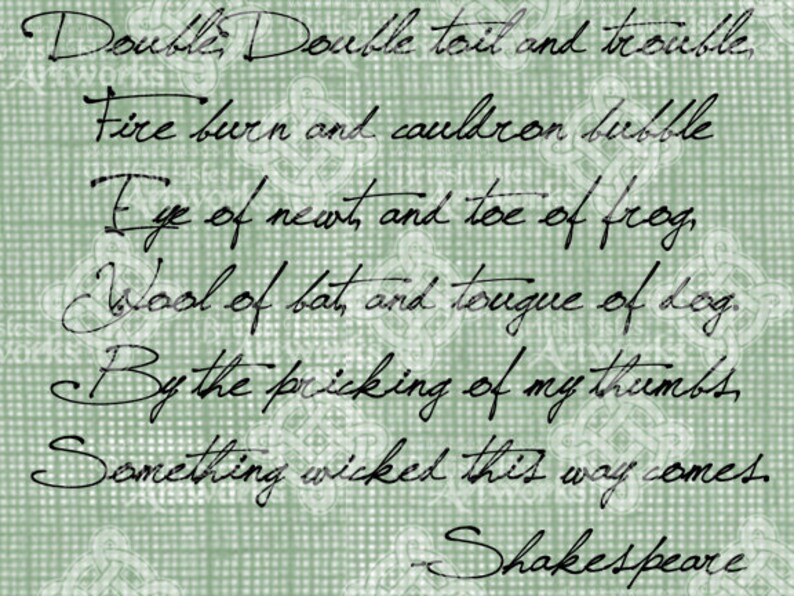 Double, Double toil and trouble,
Fire burn and cauldron bubble
Eye of newt, and toe of frog,
Wool of bat, and tougue of dog.
By the pricking of my thumbs,
Something wicked this way comes.
-Shakespeare
Artworks